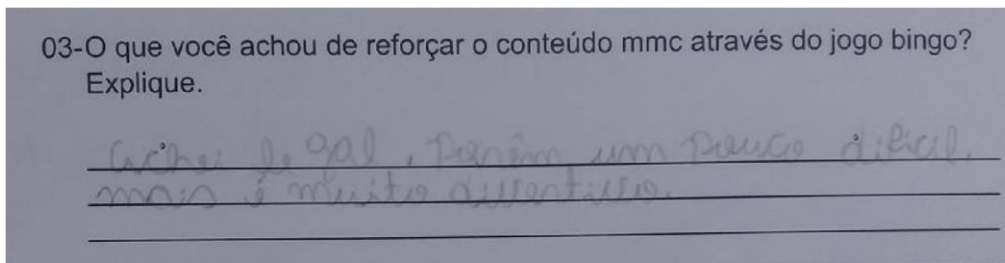 03-O que você achou de reforçar o conteúdo mmc através do jogo bingo?
Explique.
Achei legal, porém um pouco dificil.
mais é muito